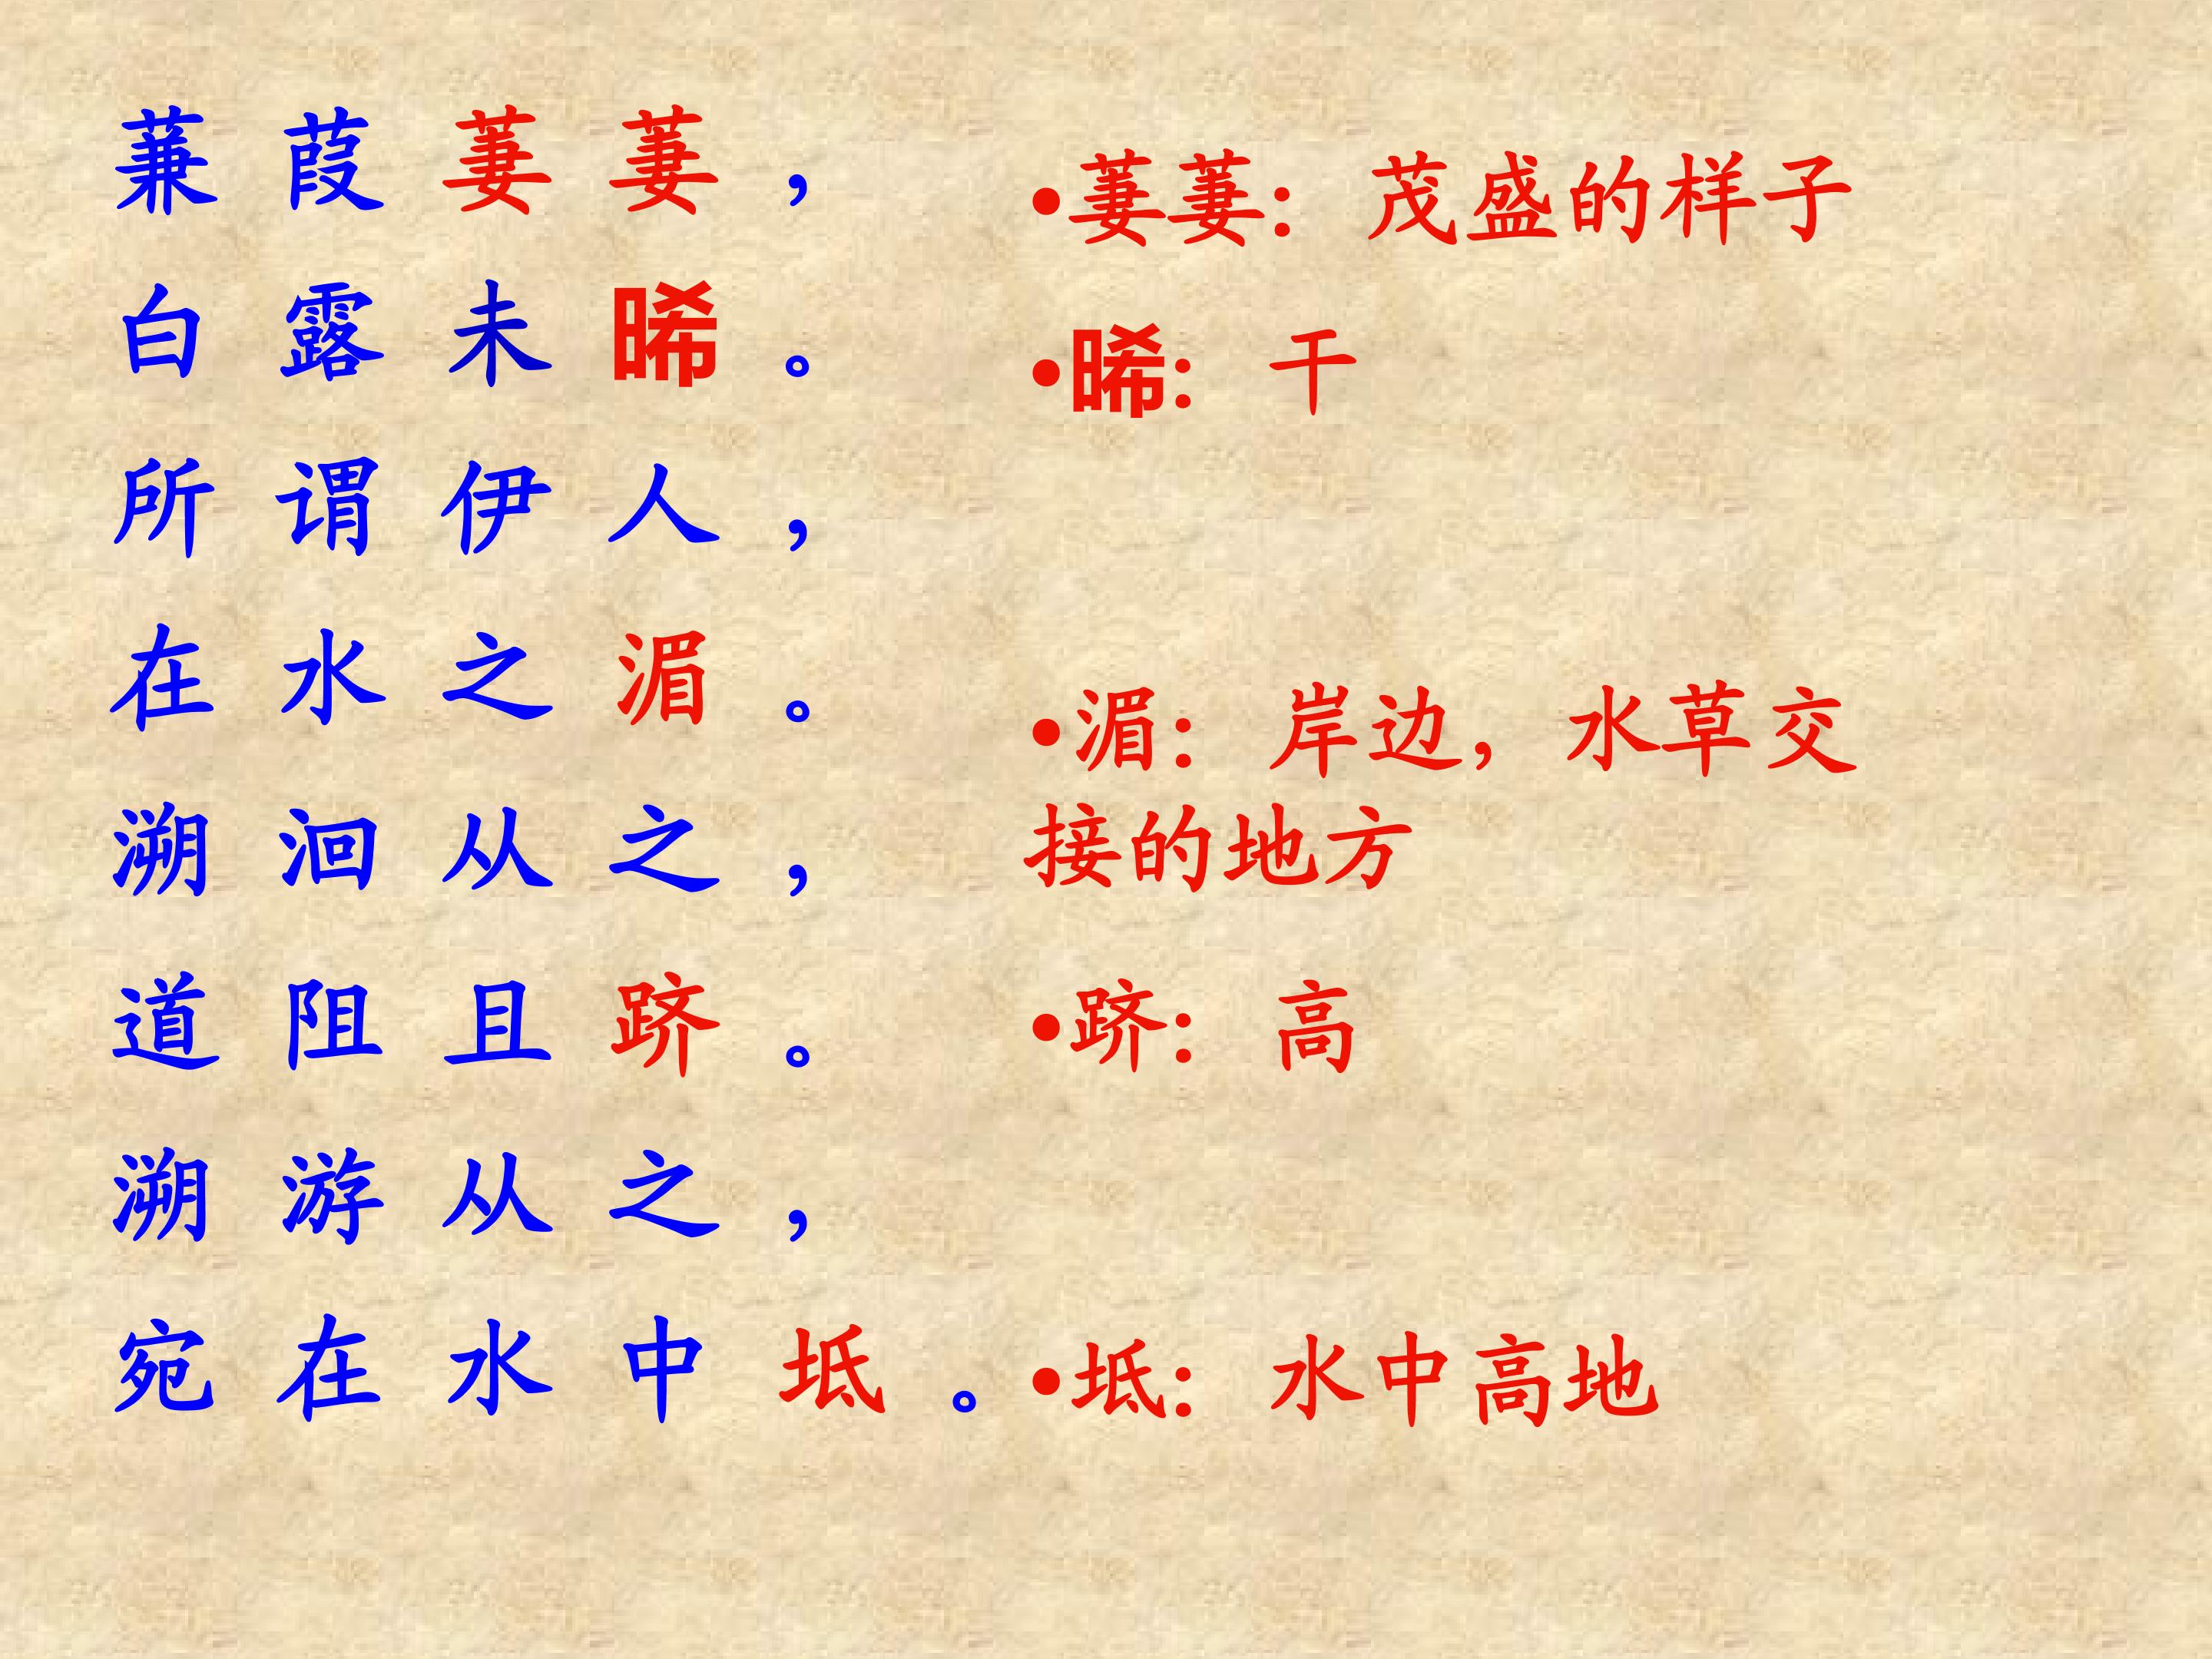 蒹葭萋萋，
白露未晞。
所谓伊人，
在水之湄。
溯洄从之，
道阻且跻。
溯游从之，
宛在水中坻。
•萋萋：茂盛的样子
•晞：干
•湄：岸边，水草交
接的地方
•跻：高
•坻：水中高地